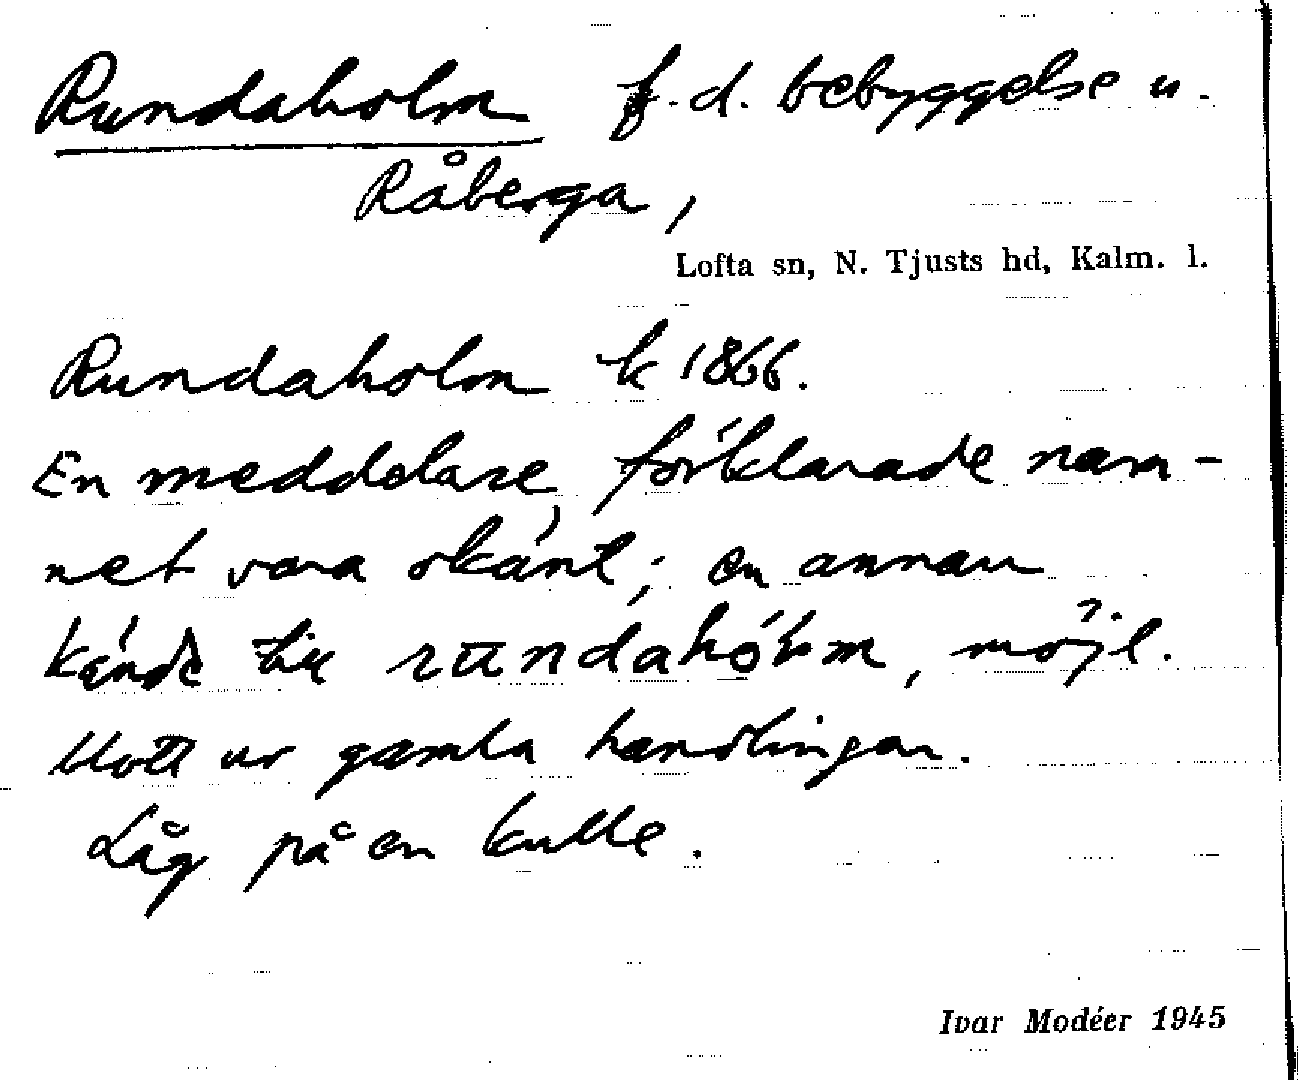 Rundaholm f.d. bebyggelse u.
Råberga,
Lofta sn, N. Tjusts hd, Kalm. l.
Rundaholm k 1866.
En meddelare, förklarade nam-
net vara okänt; en annan
kände till rundahólm, möjl.?
blott ur gamla handlingar.
Låg på en kulle.
Ivar Modéer 1945